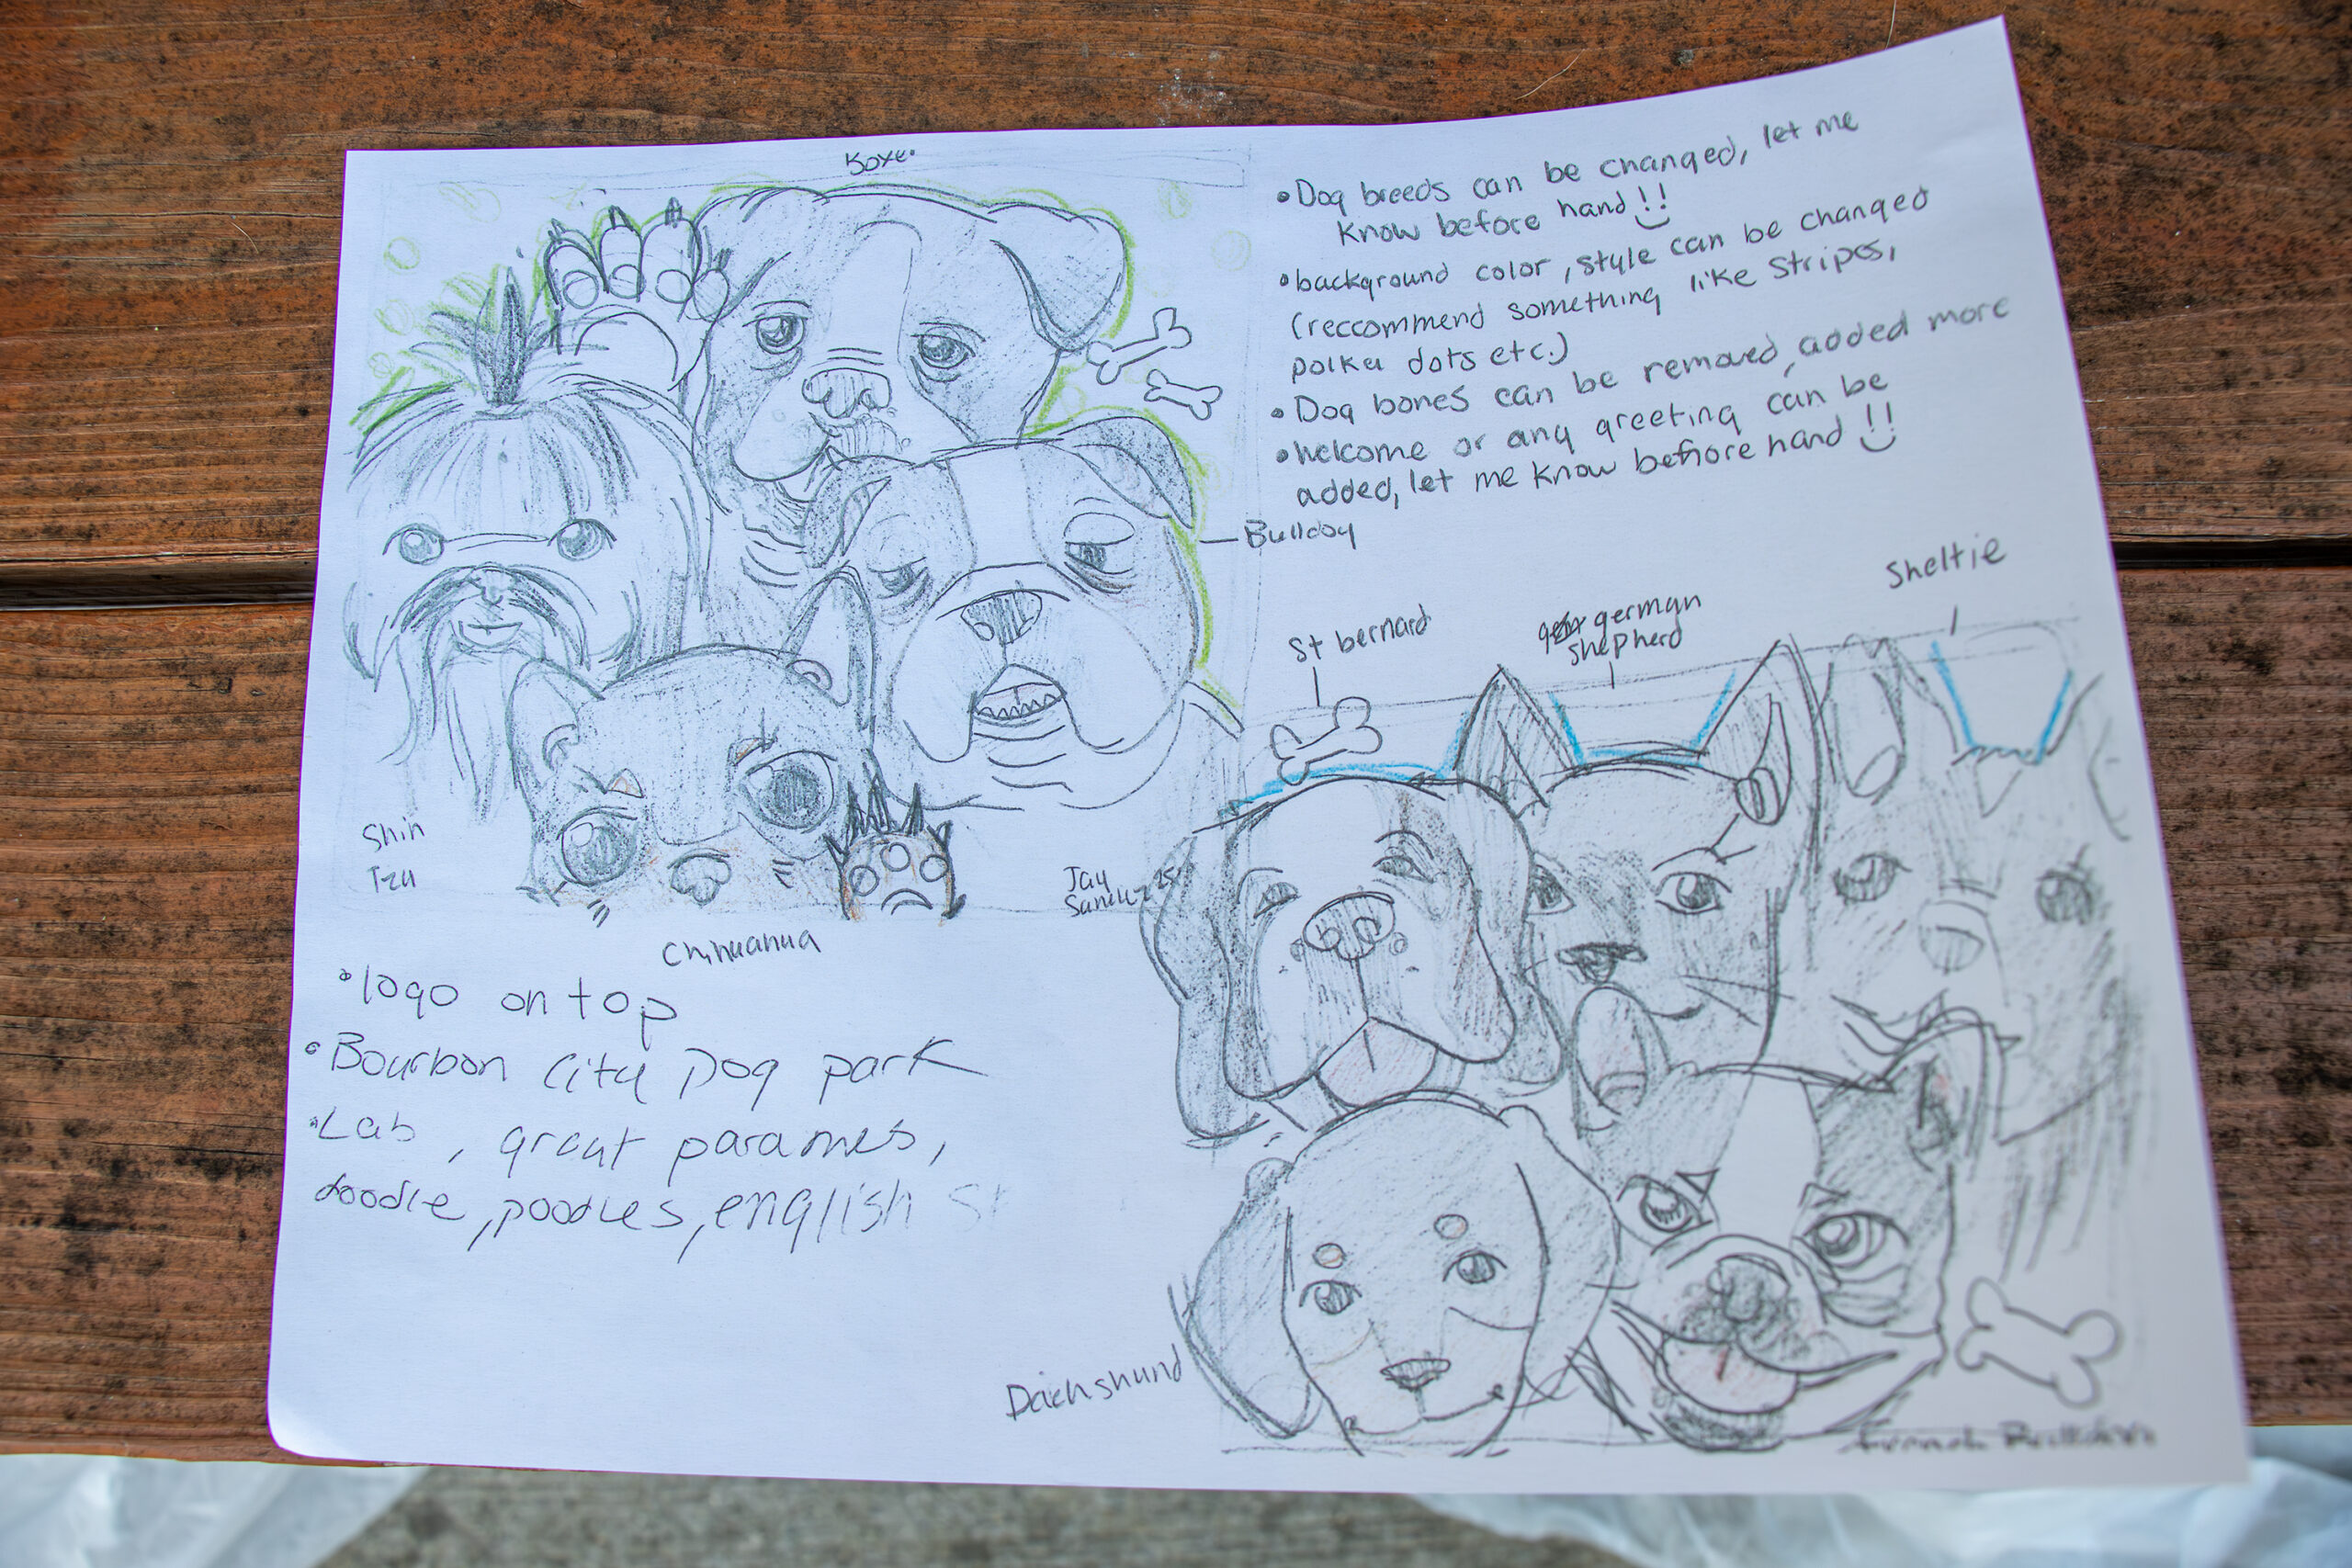 • Dog breeds can be changed, let me
know before hand !!
• background color, style can be changed
(reccommend something like stripes,
polka dots etc.)
• Dog bones can be removed, added more
• welcome or any greeting can be
added, let me know before hand !!
Bulldog
St bernard
german
shepherd
Sheltie
Shih
Tzu
Jay
Chihuahua
• logo on top
• Bourbon City Dog park
• Lab, great paraines,
doodle, poodles, english
Daichshund
French